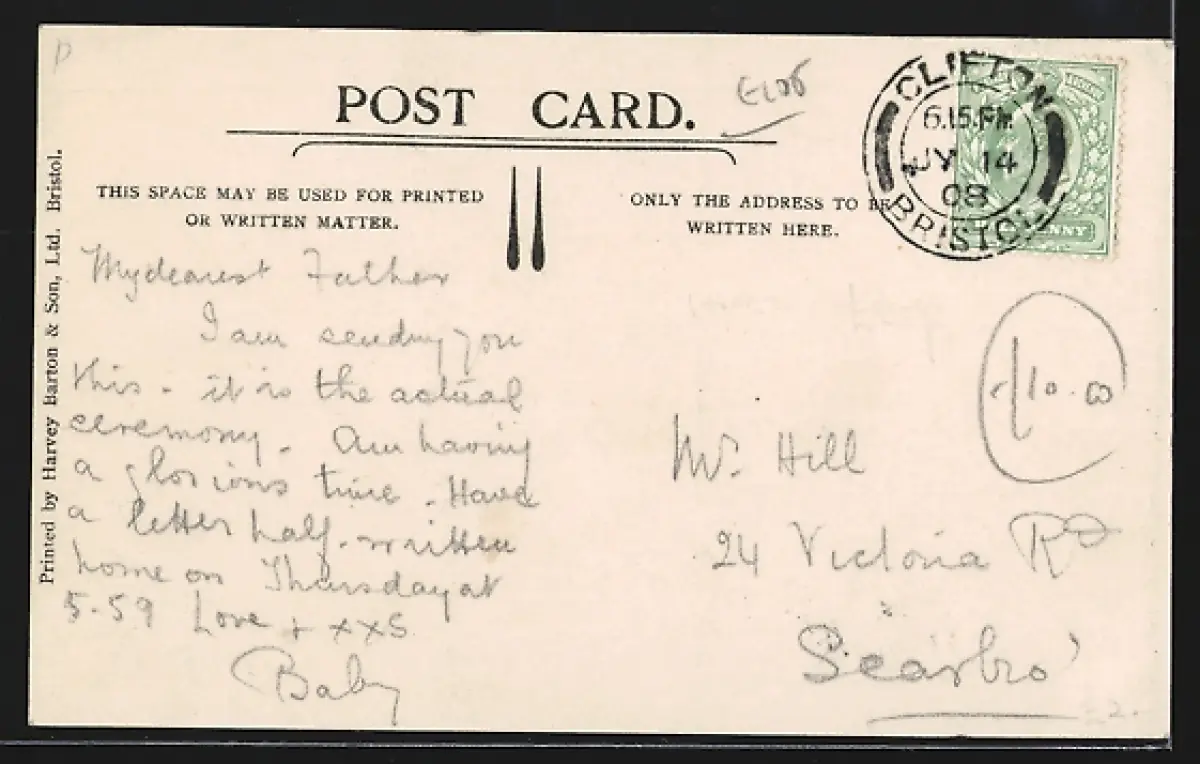 POST CARD.
THIS SPACE MAY BE USED FOR PRINTED
OR WRITTEN MATTER.
ONLY THE ADDRESS TO BE
WRITTEN HERE.
CLIFTON
6.15.PM
JY 14
08
BRISTOL
PENNY
Printed by Harvey Barton & Son, Ltd. Bristol.
My dearest Father
I am sending you
this - it is the actual
ceremony. Am having
a glorious time. Have
a letter half-written
home on Thursday at
5-59 Love + xxs
Baby
Mr. Hill
24 Victoria Rd
Scarbro'